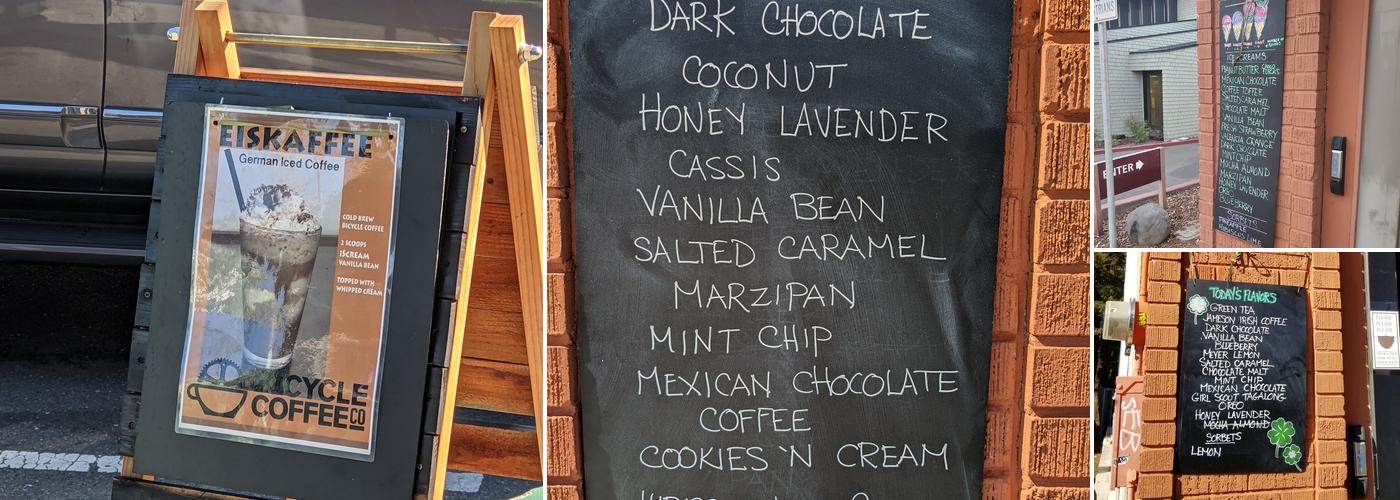 EISKAFFEE
German Iced Coffee
COLD BREW
BICYCLE COFFEE
2 SCOOPS
iSCREAM
VANILLA BEAN
TOPPED WITH
WHIPPED CREAM
BICYCLE
COFFEE CO
DARK CHOCOLATE
COCONUT
HONEY LAVENDER
CASSIS
VANILLA BEAN
SALTED CARAMEL
MARZIPAN
MINT CHIP
MEXICAN CHOCOLATE
COFFEE
COOKIES 'N CREAM
ENTER
ICE CREAMS
PEANUT BUTTER
MEXICAN CHOCOLATE
COFFEE TOFFEE
SALTED CARAMEL
CHOCOLATE MALT
VANILLA BEAN
FRESH STRAWBERRY
VALENCIA ORANGE
DARK CHOCOLATE
MINT CHIP
MOCHA ALMOND
MARZIPAN
HONEY LAVENDER
OREO
BLUEBERRY
SORBETS
PINEAPPLE
HIBISCUS LIME
TODAY'S FLAVORS
GREEN TEA
JAMESON IRISH COFFEE
DARK CHOCOLATE
VANILLA BEAN
BLUEBERRY
MEYER LEMON
SALTED CARAMEL
CHOCOLATE MALT
MINT CHIP
MEXICAN CHOCOLATE
GIRL SCOUT TAGALONG
OREO
HONEY LAVENDER
MOCHA ALMOND
SORBETS
LEMON
PLEASE
PLEASE
PLEASE